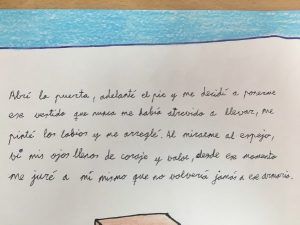 Abrí la puerta, adelanté el pie y me decidí a ponerme
ese vestido que nunca me había atrevido a llevar, me
pinté los labios y me arreglé. Al mirarme al espejo,
vi mis ojos llenos de coraje y valor, desde ese momento
me juré a mí mismo que no volvería jamás a ese armario.